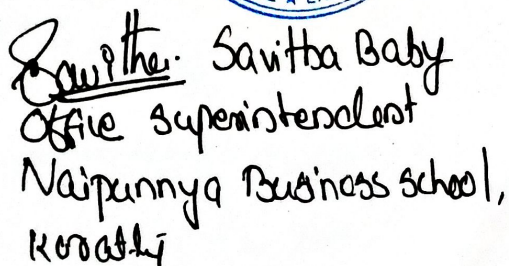 Savitha. Savitha Baby
Office Superintendent
Naipunnya Business School,
Koratty